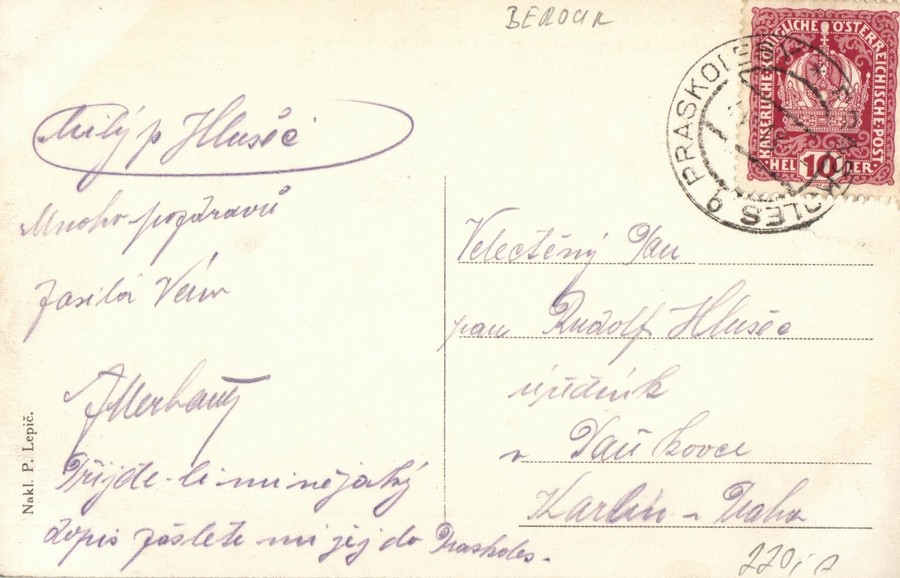 BEROUN
KAISERLICHE KÖNIGLICHE ÖSTERREICHISCHE POST
HELLER 10
PRASKOLESY
Milý p Hlušéc
Mnoho pozdravů
zasílá Vám
Přijde-li mi nějaký
dopis zášlete mi jej do Praskoles.
Velectěný Pan
pan Rudolf Hlušéc
úředník
v
Karlín – Praha
Nakl. P. Lepič.